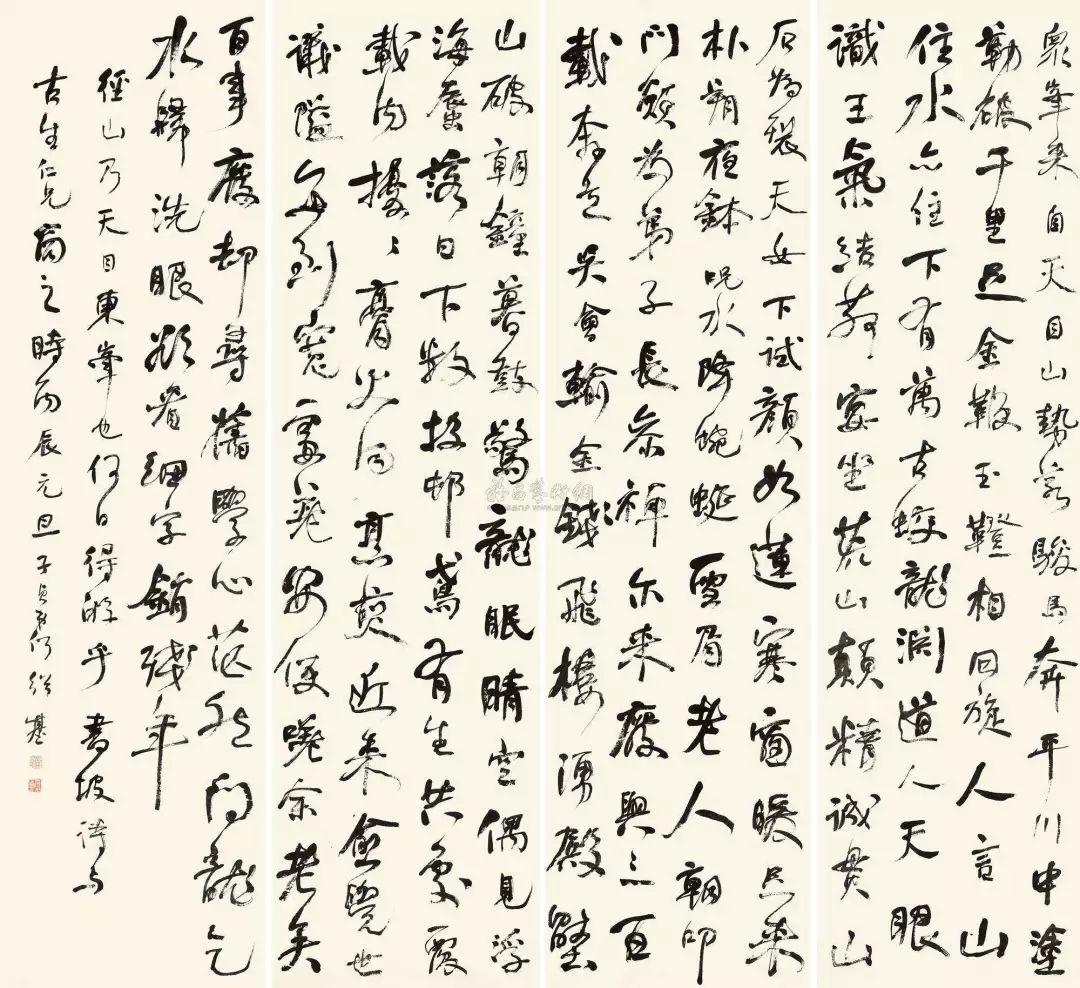 眾峯来自天目山勢若駿馬奔平川中塗
勒破千里足金鞭玉鐙相回旋人言山
住水亦住下有萬古蛟龍淵道人天眼
識王氣結茆宴坐荒山顛精誠貫山
石為裂天女下試顏如蓮寒窗暖足来
朴朔夜鉢咒水降蜿蜒雪眉老人朝叩
門願為弟子長參禪尔来廢興三百
載奔走吳會輸金錢飛樓湧殿壓
山破朝鐘暮鼓驚龍眠晴空偶見浮
海蜃落日下數投邨鳶有生共處覆
載内擾〻膏火同烹煎近来愈覺世
議隘每到寬處差安便嗟余老矣
百事廢却尋舊學心茫然問龍乞
水歸洗眼欲看細字銷殘年
徑山乃天目東峯也何日得游乎書坡詩与
古生仁兄商之時丙辰元旦子貞弟何紹基